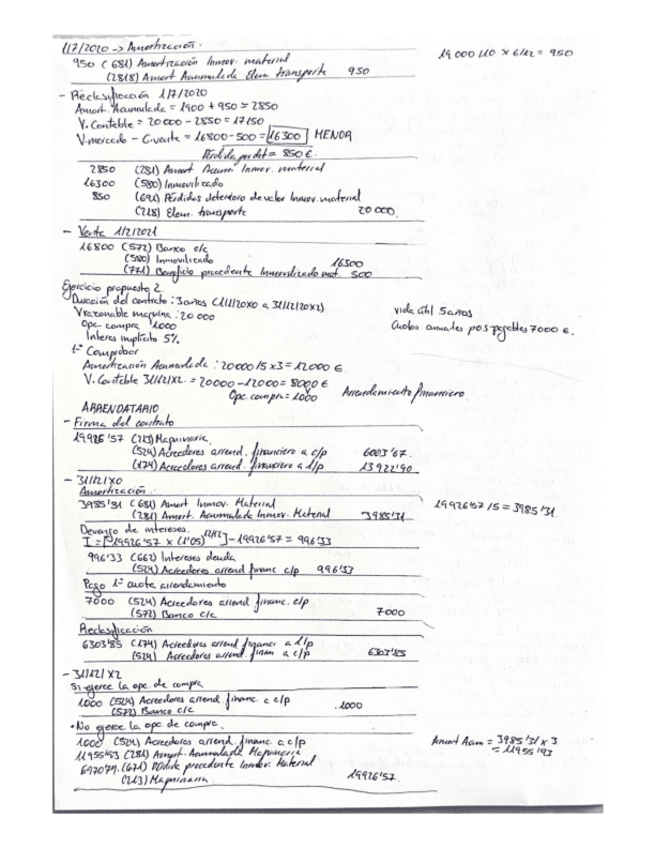 1/7/2020 → Amortización.
950 (681) Amortización Inmov. material
(2818) Amort Acumulada Elem. transporte 950
19000/10 x 6/12 = 950
- Reclasificación 1/7/2020
Amort. Acumulada = 1900 + 950 = 2850
V. Contable = 20000 - 2850 = 17150
V. mercado - C. venta = 16800 - 500 = 16300 MENOR
Pérdida por det = 850 €.
2850 (281) Amort Acum. Inmov. material
16300 (580) Inmovilizado
850 (691) Pérdidas deterioro de valor Inmov. material
(218) Elem. transporte 20 000.
- Venta 1/2/2021
16800 (572) Banco c/c
(580) Inmovilizado 16300
(771) Beneficio procedente Inmovilizado mat. 500
Ejercicio propuesto 2
Duración del contrato: 3 años (1/1/20X0 a 31/12/20X2)
V razonable maquina: 20 000
Opc. compra 1000
Interes implícito 5%.
vida útil 5 años
Cuotas anuales pospagables 7000 €.
1º Comprobar
Amortización Acumulada: 20000/5 x 3 = 12000 €
V. Contable 31/12/X2. = 20000 - 12000 = 8000 €
Opc. compra = 1000
Arrendamiento financiero
ARRENDATARIO
- Firma del contrato
19926'57 (213) Maquinaria
(524) Acreedores arrend. financiero a c/p 6003'67.
(174) Acreedores arrend. financiero a l/p 13922'90
- 31/12/X0
Amortización:
3985'31 (681) Amort Inmov. Material
(281) Amort. Acumulada Inmov. Material 3985'31
19926'57 /5 = 3985'31
Devengo de intereses.
I = [19926'57 x (1'05)^12/12] - 19926'57 = 996'33
996'33 (662) Intereses deuda
(524) Acreedores arrend financ c/p 996'33
Pago 1ª cuota arrendamiento
7000 (524) Acreedores arrend financ. c/p
(572) Banco c/c 7000
Reclasificación
6303'85 (174) Acreedores arrend financ a l/p
(524) Acreedores arrend. finan a c/p 6303'85
- 31/12/X2
Si ejerce la opc. de compra
1000 (524) Acreedores arrend. financ. a c/p
(572) Banco c/c 1000
• No ejerce la opc de compra.
1000 (524) Acreedores arrend. financ. a c/p
11955'93 (281) Amort. Acumulada Maquinaria
(671) Pérdida procedente Inmov. Material
(213) Maquinaria 19926'57.
Amort Acum = 3985'31 x 3
= 11955'93